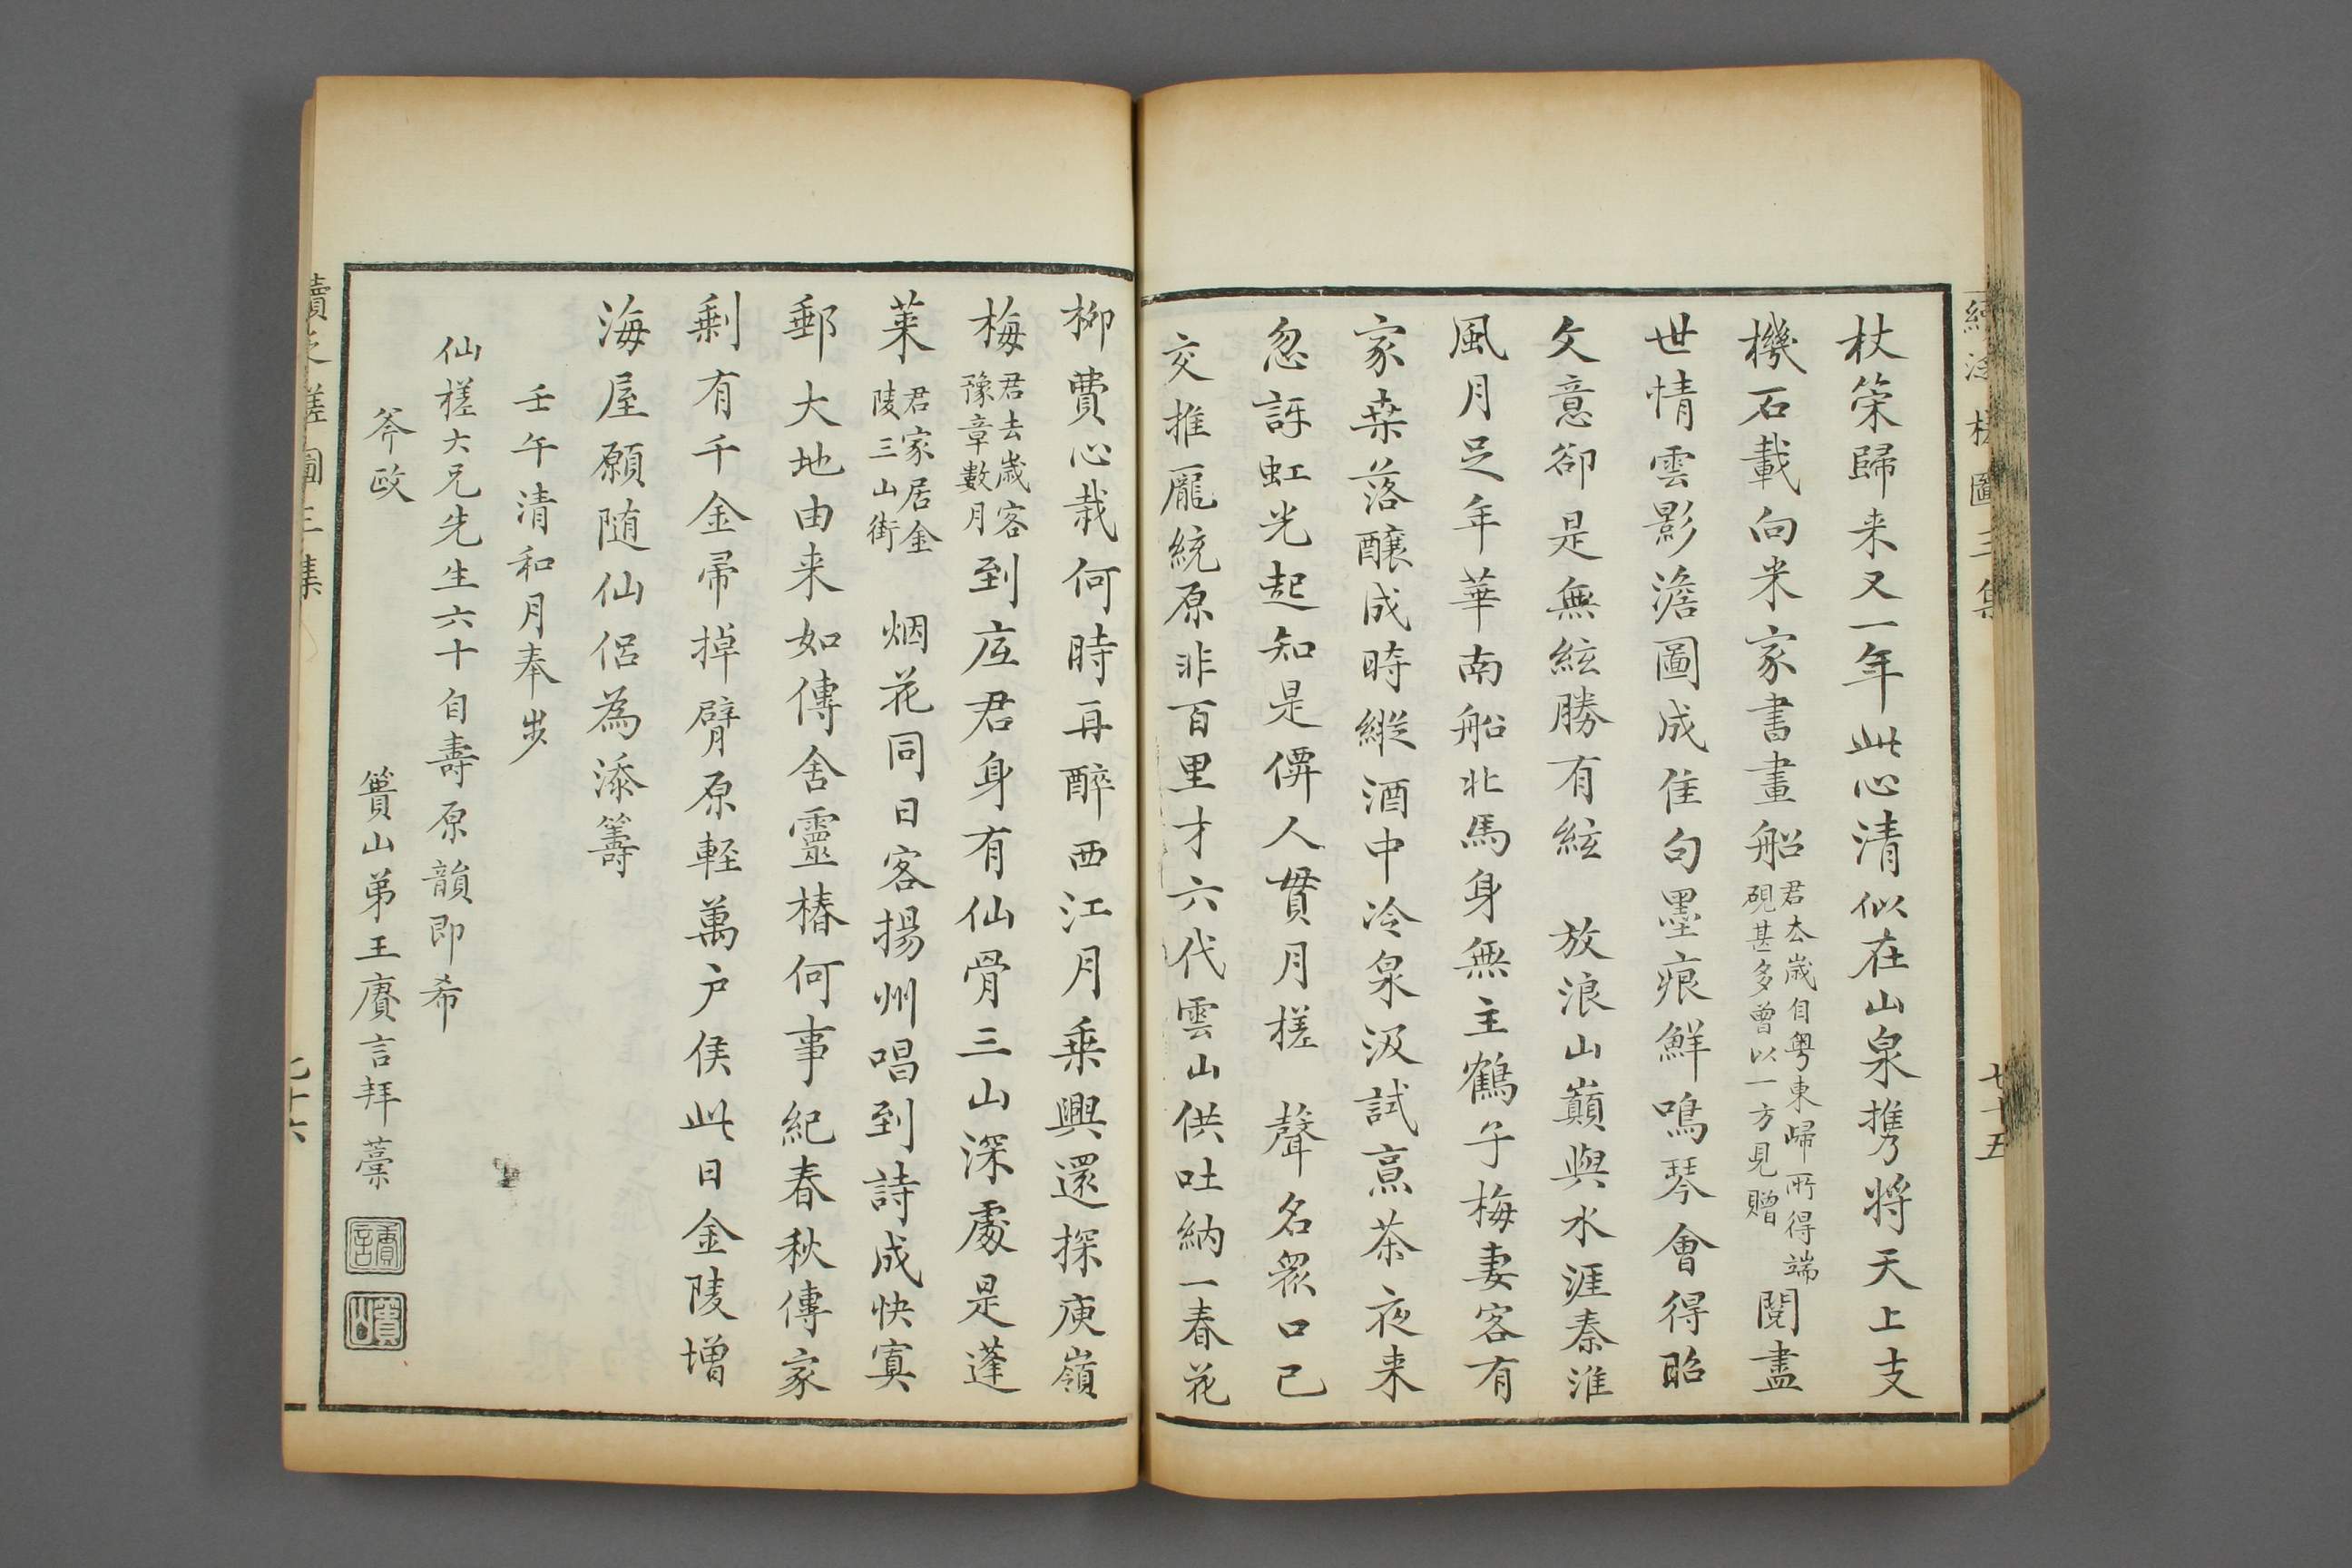 續泛槎圖三集
七十五
杖策歸来又一年此心清似在山泉携将天上支
機石載向米家書畫船君去歲自粤東歸所得端硯甚多曾以一方見贈閱盡
世情雲影澹圖成佳句墨痕鮮鳴琴會得昭
文意卻是無絃勝有絃 放浪山巔與水涯秦淮
風月足年華南船北馬身無主鶴子梅妻客有
家桒落釀成時縱酒中冷泉汲試烹茶夜来
忽訝虹光起知是僊人貫月槎 聲名衆口已
交推龎統原非百里才六代雲山供吐納一春花
柳費心栽何時再醉西江月乗興還探庾嶺
梅君去歲客豫章數月到㡳君身有仙骨三山深處是蓬
莱君家居金陵三山街 烟花同日客揚州唱到詩成快寞
郵大地由来如傳舍靈椿何事紀春秋傳家
剩有千金帚掉臂原輕萬户侯此日金陵增
海屋願随仙侣為添籌
壬午清和月奉步
仙槎大兄先生六十自壽原韻即希
斧政
簣山弟王賡言拜藁
賡言
簣山
續泛槎圖三集
七十六